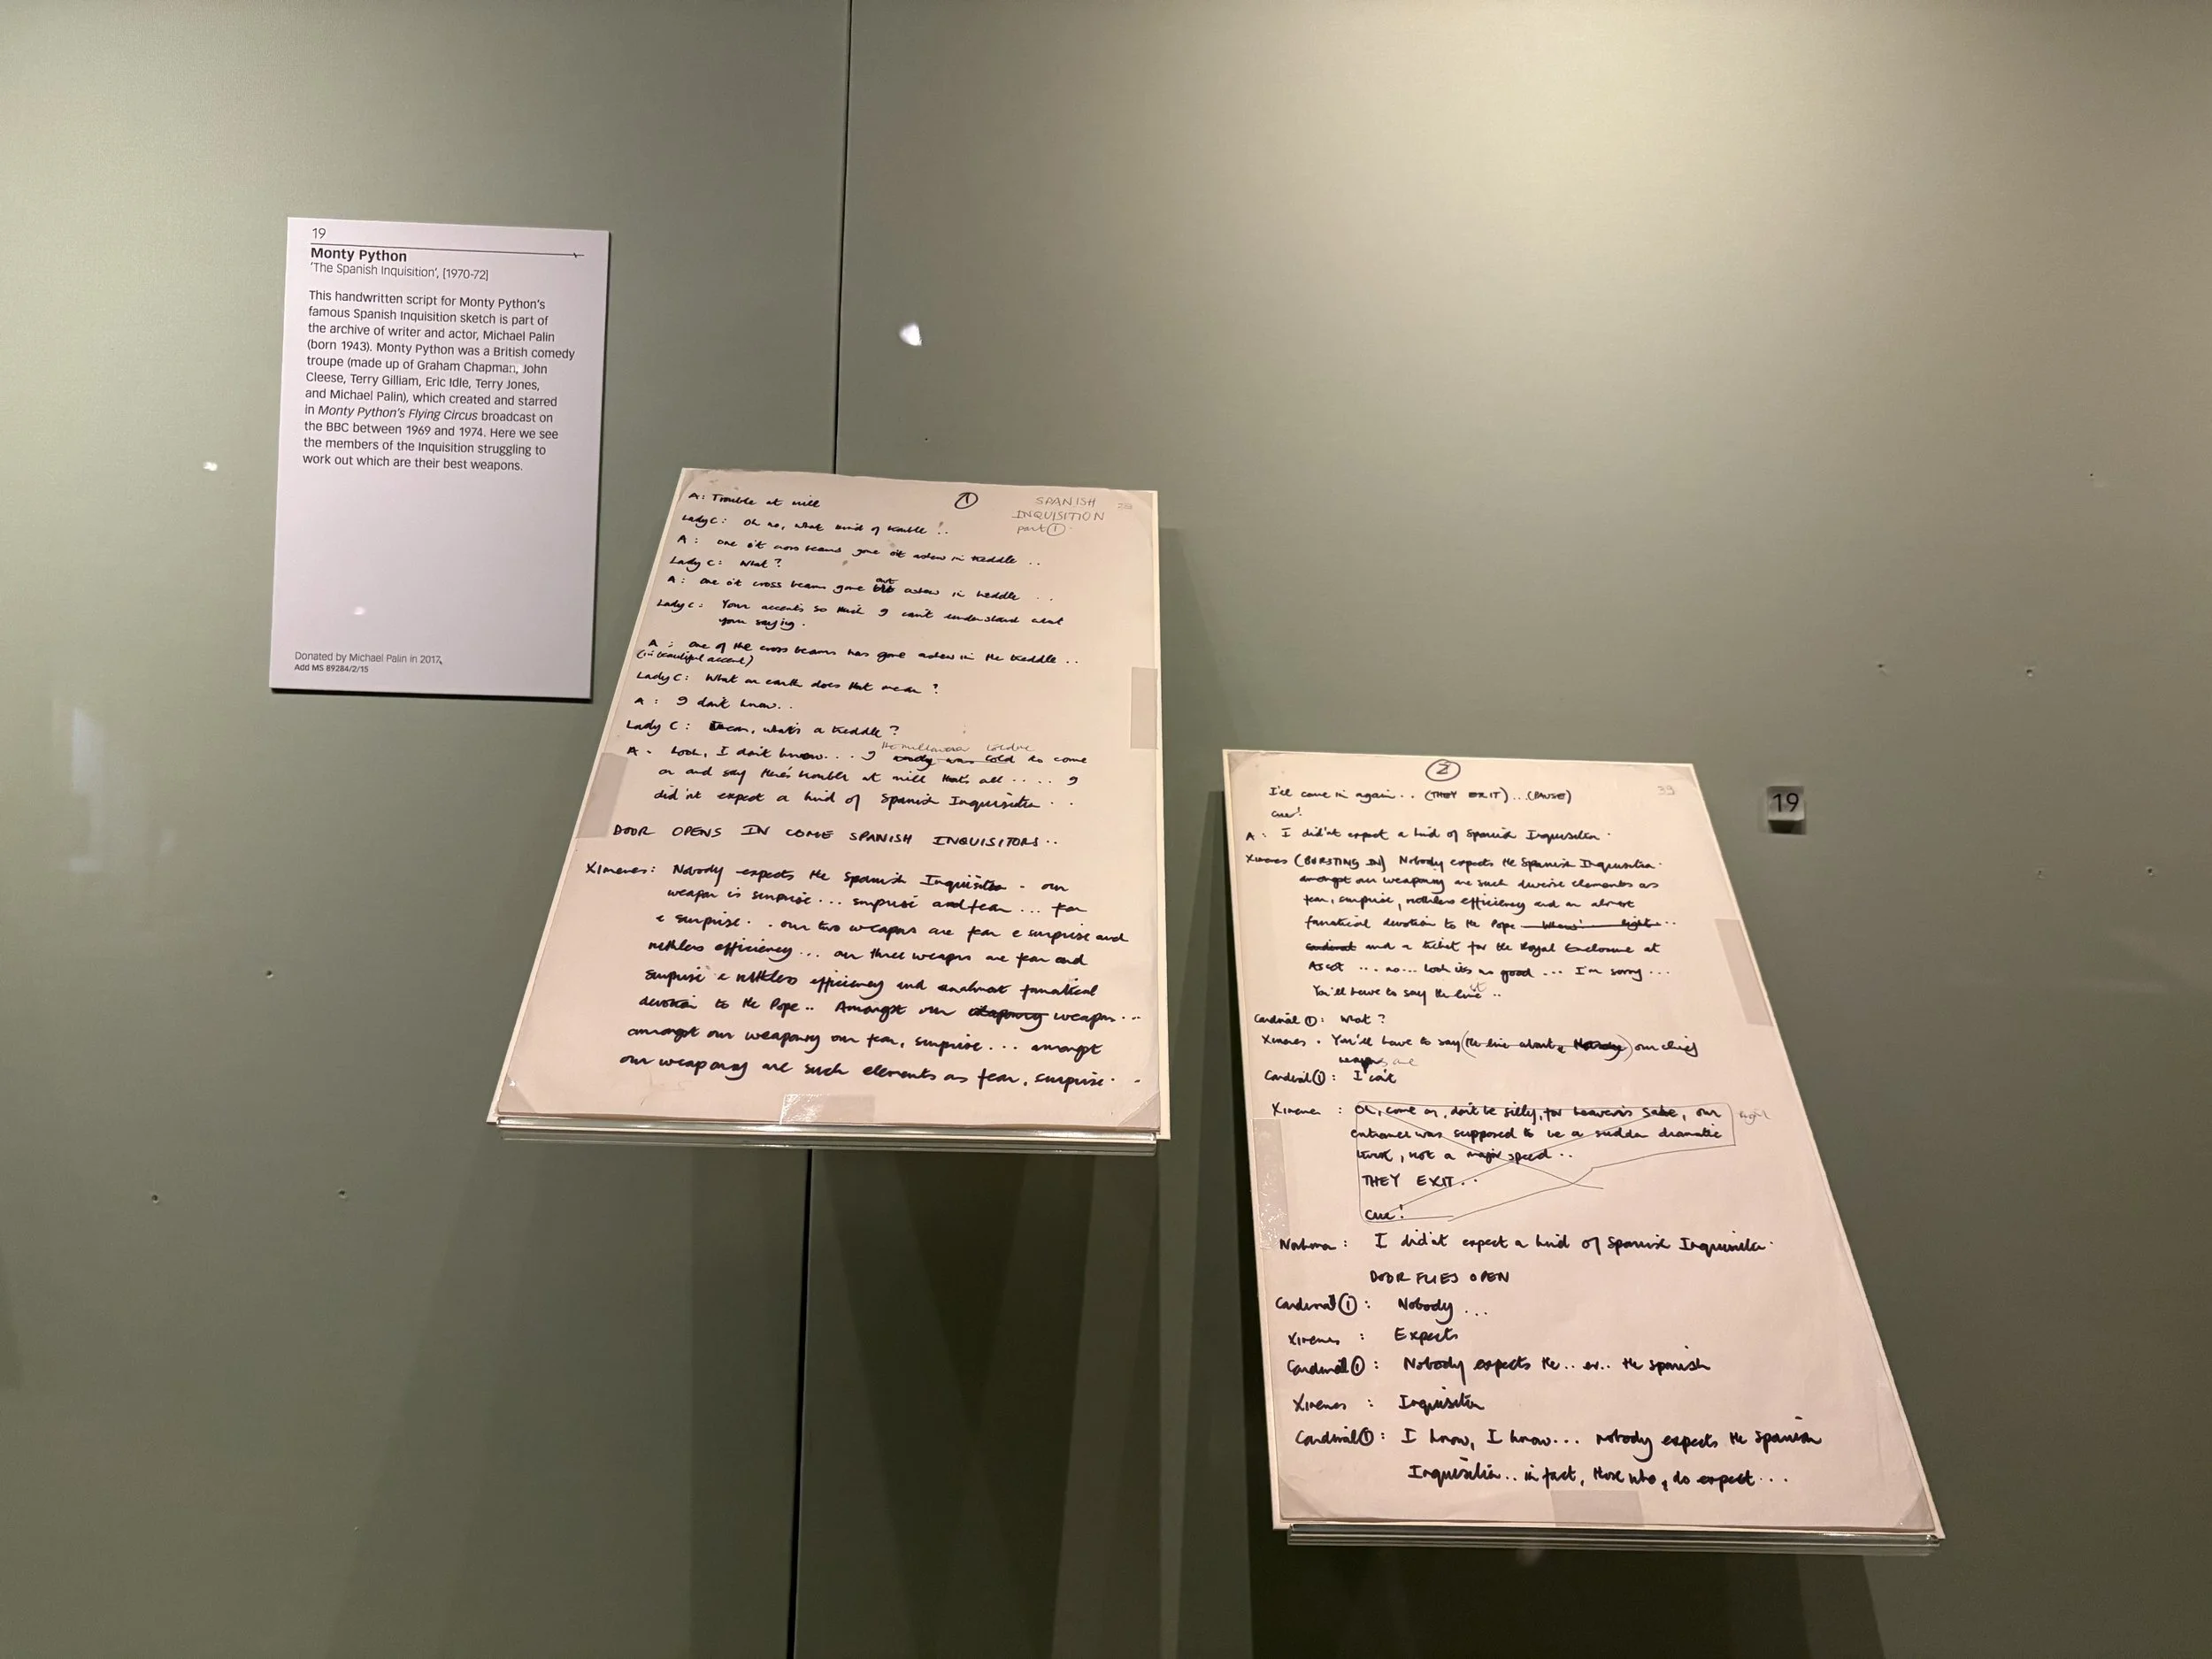 19
Monty Python
'The Spanish Inquisition', [1970-72]
This handwritten script for Monty Python's
famous Spanish Inquisition sketch is part of
the archive of writer and actor, Michael Palin
(born 1943). Monty Python was a British comedy
troupe (made up of Graham Chapman, John
Cleese, Terry Gilliam, Eric Idle, Terry Jones,
and Michael Palin), which created and starred
in Monty Python's Flying Circus broadcast on
the BBC between 1969 and 1974. Here we see
the members of the Inquisition struggling to
work out which are their best weapons.
Donated by Michael Palin in 2017.
Add MS 89284/2/15
1
SPANISH
INQUISITION
part 1
A: Trouble at mill
Lady C: Oh no, what kind of trouble!..
A: one o't cross beams gone o't askew in treddle ..
Lady C: What?
A: one o't cross beams gone out askew in treddle ..
Lady C: Your accents so thick I can't understand what
your saying.
A: one of the cross beams has gone askew in the treddle ..
(in beautiful accent)
Lady C: What on earth does that mean?
A: I don't know..
Lady C: what's a treddle?
A - Look, I don't know... I
was told to come
on and say there's trouble at mill that's all .... I
did'nt expect a kind of Spanish Inquisition ..
DOOR OPENS IN COME SPANISH INQUISITORS..
Ximenes: Nobody expects the Spanish Inquisition - our
weapon is surprise... surprise and fear... fear
& surprise.. our two weapons are fear & surprise and
ruthless efficiency... our three weapons are fear and
surprise & ruthless efficiency and an almost fanatical
devotion to the Pope.. Amongst our weaponry weapons...
amongst our weaponry our fear, surprise... amongst
our weaponry are such elements as fear, surprise..
2
39
I'll come in again.. (THEY EXIT)...(PAUSE)
cue!
A: I did'nt expect a kind of Spanish Inquisition.
Ximenes (BURSTING IN) Nobody expects the Spanish Inquisition.
amongst our weaponry are such diverse elements as
fear, surprise, ruthless efficiency and an almost
fanatical devotion to the Pope
and a ticket for the Royal Enclosure at
Ascot ... no... look its no good ... I'm sorry ...
You'll have to say the line ..
Cardinal 1: What?
Ximenes: You'll have to say (the line about) our chief
weapons are
Cardinal 1: I can't
Ximenes: Oh, come on, don't be silly, for heaven's sake, our
entrance was supposed to be a sudden dramatic
, not a major speech..
THEY EXIT..
cue!
: I did'nt expect a kind of Spanish Inquisition.
DOOR FLIES OPEN
Cardinal 1: Nobody ...
Ximenes: Expects
Cardinal 1: Nobody expects the.. er.. the Spanish
Ximenes: Inquisition
Cardinal 1: I know, I know... nobody expects the Spanish
Inquisition.. in fact, those who do expect...
19